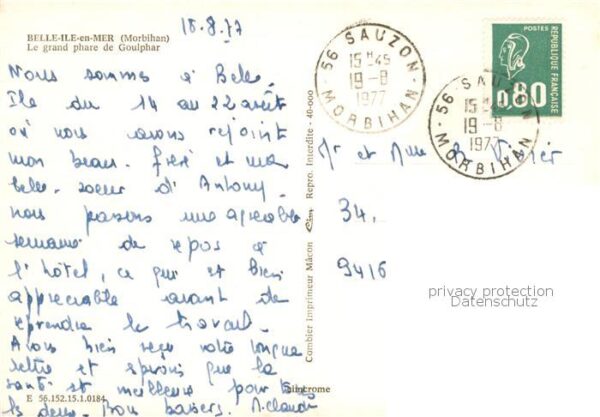 18.8.77
BELLE-ILE-en-MER (Morbihan)
Le grand phare de Goulphar
Nous sommes à Belle-
Ile du 14 au 22 août
où nous avons rejoint
mon beau-frère et ma
belle-soeur d'Antony.
nous passons une agréable
semaine de repos à
l'hôtel, ce qui est bien
appréciable avant de
reprendre le travail.
Avons bien reçu votre longue
lettre et espérons que la
santé est meilleure pour
les deux. Bon baisers. M.Claude
E 56.152.15.1.0184
Combier Imprimeur Mâcon Cim Repro. Interdite - 40-000
56 SAUZON
15H45
19-8
1977
MORBIHAN
POSTES
REPUBLIQUE FRANÇAISE
0,80
56 SAUZON
19-8
1977
MORBIHAN
Mr et Mme
34,
9416
privacy protection
Datenschutz